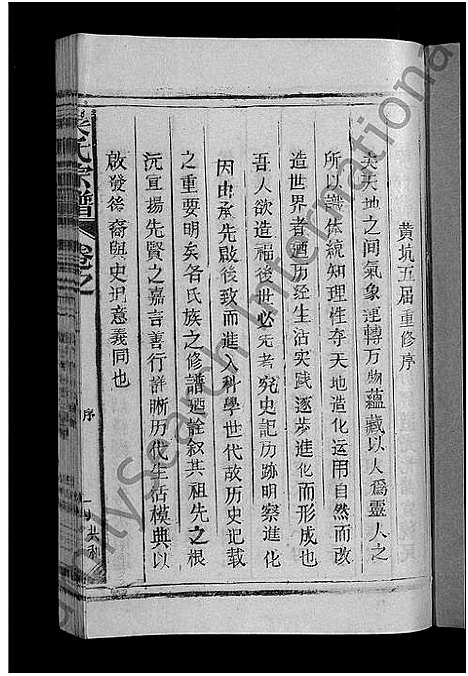 黄坑五届重修序
夫天地之间氣象運轉万物蘊藏以人爲靈人之
所以識体統知理性夺天地造化运用自然而改
造世界者廼历经生活实践逐步進化而形成也
吾人欲造福後世必先考究史記历跡明察進化
因由承先啟後致而進入科學世代故历史记载
之重要明矣各氏族之修譜廼詮叙其祖先之根
沅宣揚先賢之嘉言善行詳晰历代生活模典以
啟发後裔與史记意義同也
氏宗譜
卷之
序
共和